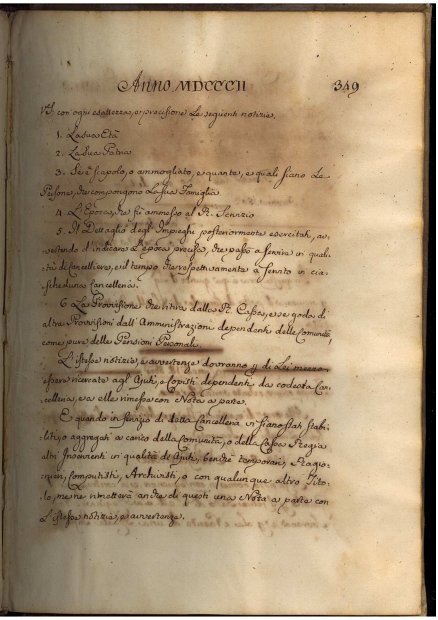 Anno MDCCCII 349
VS. con ogni esattezza, e precisione Le seguenti notizie.
1. La sua Età
2. La Sua Patria
3. Se è scapolo, o ammogliato, e quante, e quali siano Le
Persone, che compongono La sua Famiglia
4. L'Epoca, che fù ammesso al R. Servizio
5. Il Dettaglio degl'Impieghi posteriormente esercitati, av-
vertendo d'indicare L'epoca precisa, che passò a servire in quali-
tà di Cancelliere, e il tempo che rispettivamente à servito in cia-
scheduna Cancelleria.
6 La Provvisione che ritira dalla R. Cassa, e se goda di
altre Provvisioni dall'Amministrazioni dependenti delle Comunità,
come pure delle Pensioni Personali.
L'istesse notizie, e avvertenze dovranno p. di Lei mezzo
essere ricercate agl'Ajuti, e Copisti dependenti da codesta Can-
celleria, e a me rimesse con Nota a parte.
E quando in servizio di detta Cancelleria vi siano stati stabi-
liti, o aggregati a carico della Comunità, o della Cassa Regia
altri Inservienti in qualità di Ajuti, benchè temporarj, Ragio-
nieri, Computisti, Archivisti, o con qualunque altro Tito-
lo, me ne rimetterà anche di questi una Nota a parte con
L'istesse notizie, e avvertenze.